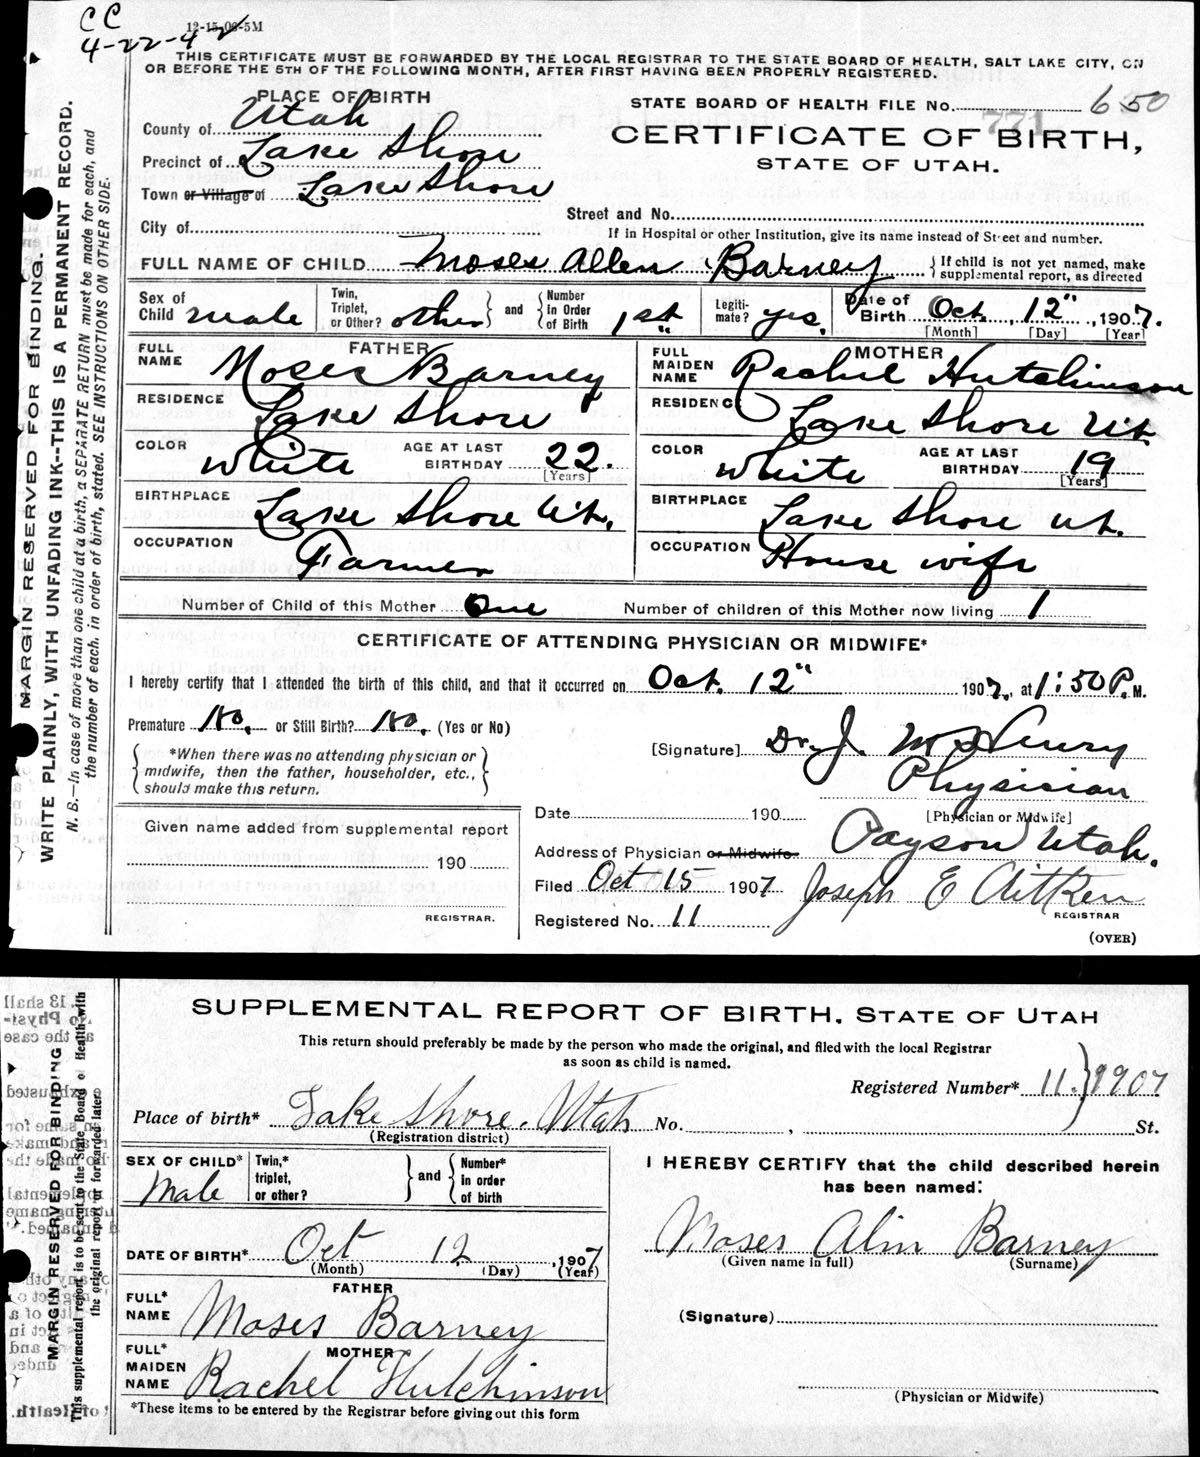 CC
4-22-42
12-15-06-5M
THIS CERTIFICATE MUST BE FORWARDED BY THE LOCAL REGISTRAR TO THE STATE BOARD OF HEALTH, SALT LAKE CITY, ON
OR BEFORE THE 5TH OF THE FOLLOWING MONTH, AFTER FIRST HAVING BEEN PROPERLY REGISTERED.
PLACE OF BIRTH
STATE BOARD OF HEALTH FILE No. 650
771
County of Utah
CERTIFICATE OF BIRTH,
STATE OF UTAH.
Precinct of Lake Shore
Town or Village of Lake Shore
Street and No.
City of
If in Hospital or other Institution, give its name instead of Street and number.
FULL NAME OF CHILD Moses Allen Barney } If child is not yet named, make supplemental report, as directed
Sex of Child male Twin, Triplet, or Other? other } and { Number in Order of Birth 1st Legitimate? yes. Date of Birth Oct. 12", 1907.
[Month] [Day] [Year]
FATHER
FULL NAME Moses Barney
RESIDENCE Lake Shore
COLOR White AGE AT LAST BIRTHDAY 22. [Years]
BIRTHPLACE Lake Shore Ut.
OCCUPATION Farmer
MOTHER
FULL MAIDEN NAME Rachel Hutchinson
RESIDENCE Lake Shore Ut.
COLOR White AGE AT LAST BIRTHDAY 19 [Years]
BIRTHPLACE Lake Shore Ut.
OCCUPATION House wife
Number of Child of this Mother One Number of children of this Mother now living 1
CERTIFICATE OF ATTENDING PHYSICIAN OR MIDWIFE*
I hereby certify that I attended the birth of this child, and that it occurred on Oct. 12" 1907, at 1:50 P. M.
Premature No. or Still Birth? No. (Yes or No)
*When there was no attending physician or
midwife, then the father, householder, etc.,
should make this return.
[Signature] Dr. J. McHenry
Physician
[Physician or Midwife]
Given name added from supplemental report
190
REGISTRAR.
Date 190
Address of Physician or Midwife. Payson Utah.
Filed Oct 15 1907 Joseph E Aitken
REGISTRAR
Registered No. 11
(OVER)
MARGIN RESERVED FOR BINDING.
WRITE PLAINLY, WITH UNFADING INK--THIS IS A PERMANENT RECORD.
N. B.—In case of more than one child at a birth, a SEPARATE RETURN must be made for each, and
the number of each, in order of birth, stated. SEE INSTRUCTIONS ON OTHER SIDE.
SUPPLEMENTAL REPORT OF BIRTH. STATE OF UTAH
This return should preferably be made by the person who made the original, and filed with the local Registrar
as soon as child is named.
Registered Number* 11. } 1907
Place of birth* Lake Shore. Utah No. , St.
(Registration district)
SEX OF CHILD* Male Twin,* triplet, or other? } and { Number* in order of birth
DATE OF BIRTH* Oct 12, 1907
(Month) (Day) (Year)
FATHER
FULL* NAME Moses Barney
MOTHER
FULL* MAIDEN NAME Rachel Hutchinson
*These items to be entered by the Registrar before giving out this form
I HEREBY CERTIFY that the child described herein
has been named:
Moses Alin Barney
(Given name in full) (Surname)
(Signature)
(Physician or Midwife)
MARGIN RESERVED FOR BINDING
This supplemental report is to be sent to the State Board of Health with
the original report or forwarded later.